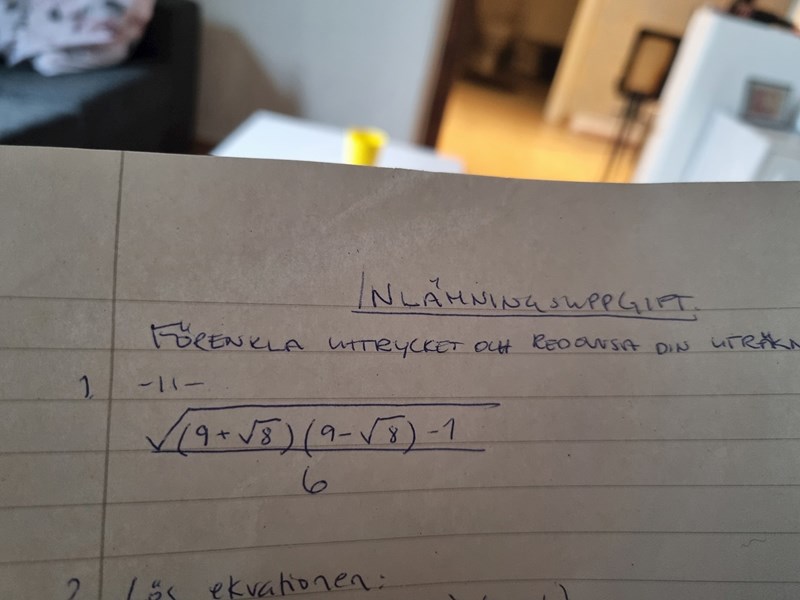 INLÄMNINGSUPPGIFT.
FÖRENKLA UTTRYCKET OCH REDOVISA DIN UTRÄKN
1. -11-
√(9+√8)(9-√8)-1
6
2. Lös ekvationen: